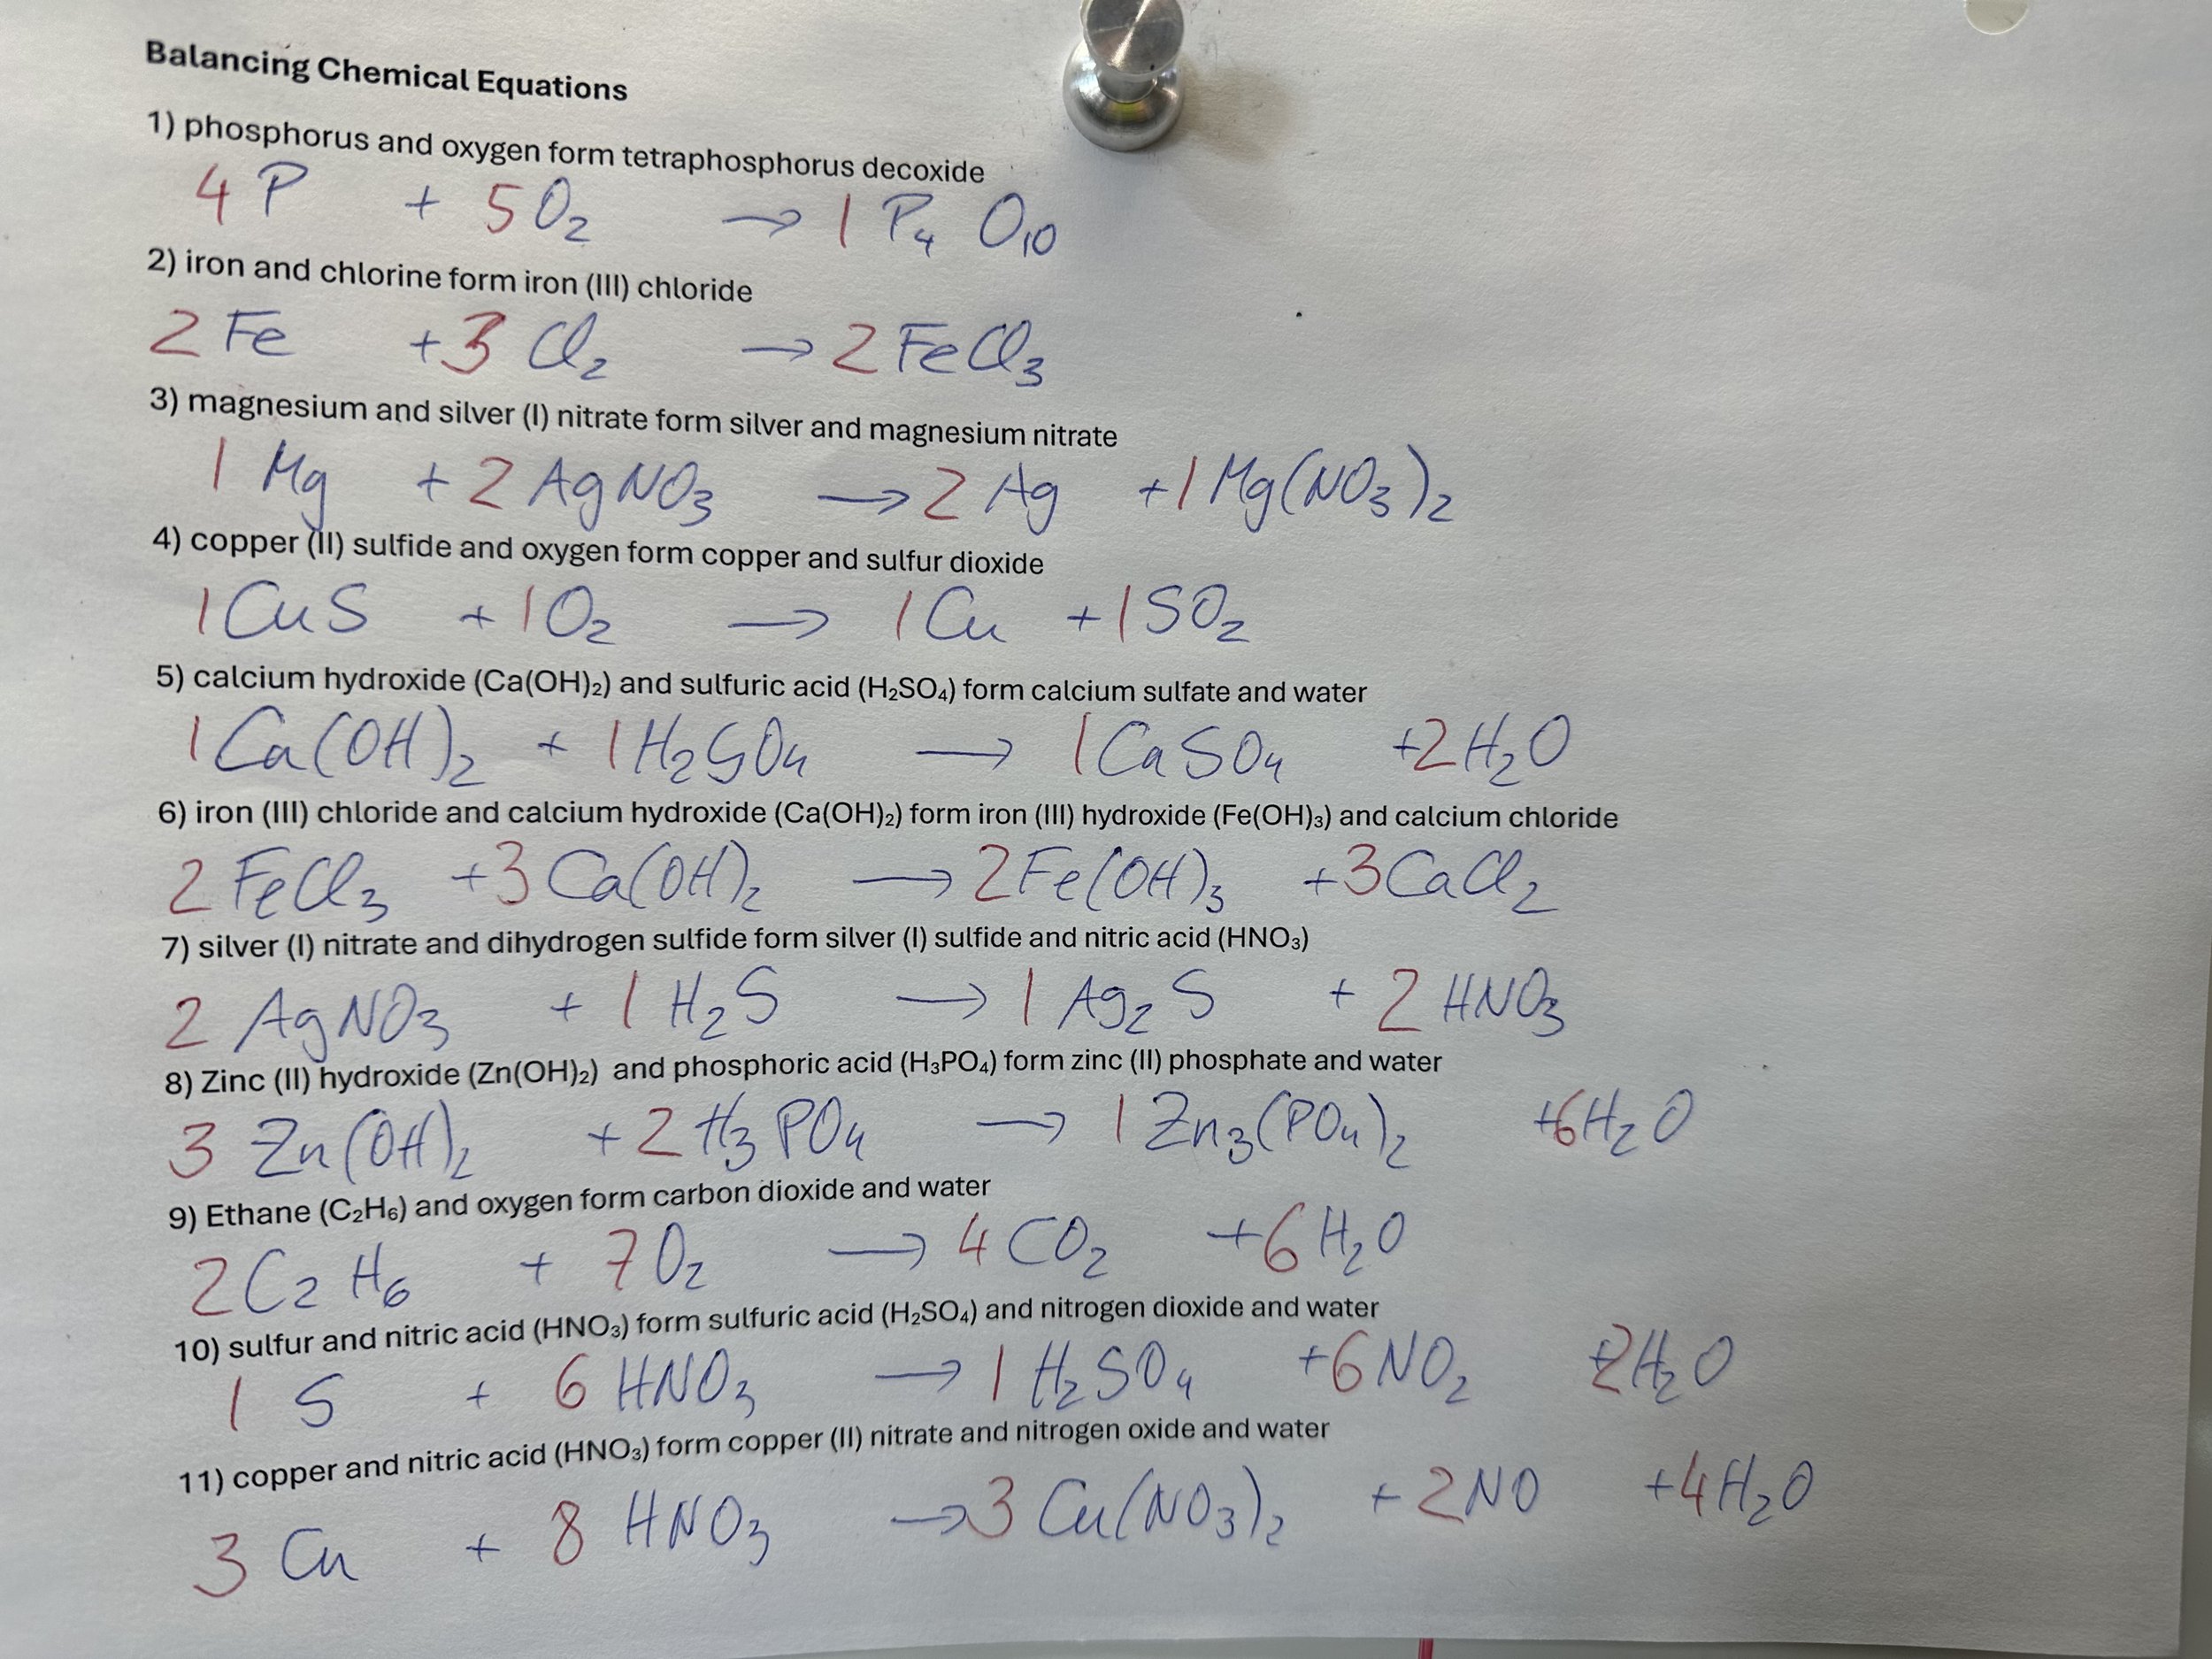 Balancing Chemical Equations
1) phosphorus and oxygen form tetraphosphorus decoxide
4 P + 5 O₂ → 1 P₄ O₁₀
2) iron and chlorine form iron (III) chloride
2 Fe + 3 Cl₂ → 2 FeCl₃
3) magnesium and silver (I) nitrate form silver and magnesium nitrate
1 Mg + 2 AgNO₃ → 2 Ag + 1 Mg(NO₃)₂
4) copper (II) sulfide and oxygen form copper and sulfur dioxide
1 CuS + 1 O₂ → 1 Cu + 1 SO₂
5) calcium hydroxide (Ca(OH)₂) and sulfuric acid (H₂SO₄) form calcium sulfate and water
1 Ca(OH)₂ + 1 H₂SO₄ → 1 CaSO₄ + 2 H₂O
6) iron (III) chloride and calcium hydroxide (Ca(OH)₂) form iron (III) hydroxide (Fe(OH)₃) and calcium chloride
2 FeCl₃ + 3 Ca(OH)₂ → 2 Fe(OH)₃ + 3 CaCl₂
7) silver (I) nitrate and dihydrogen sulfide form silver (I) sulfide and nitric acid (HNO₃)
2 AgNO₃ + 1 H₂S → 1 Ag₂S + 2 HNO₃
8) Zinc (II) hydroxide (Zn(OH)₂) and phosphoric acid (H₃PO₄) form zinc (II) phosphate and water
3 Zn(OH)₂ + 2 H₃PO₄ → 1 Zn₃(PO₄)₂ + 6 H₂O
9) Ethane (C₂H₆) and oxygen form carbon dioxide and water
2 C₂H₆ + 7 O₂ → 4 CO₂ + 6 H₂O
10) sulfur and nitric acid (HNO₃) form sulfuric acid (H₂SO₄) and nitrogen dioxide and water
1 S + 6 HNO₃ → 1 H₂SO₄ + 6 NO₂ + 2 H₂O
11) copper and nitric acid (HNO₃) form copper (II) nitrate and nitrogen oxide and water
3 Cu + 8 HNO₃ → 3 Cu(NO₃)₂ + 2 NO + 4 H₂O